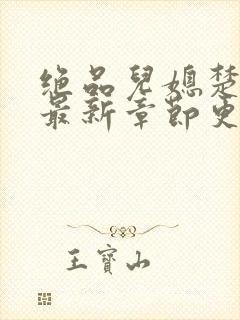 绝品兒媳楚
最新章節史
王寶山